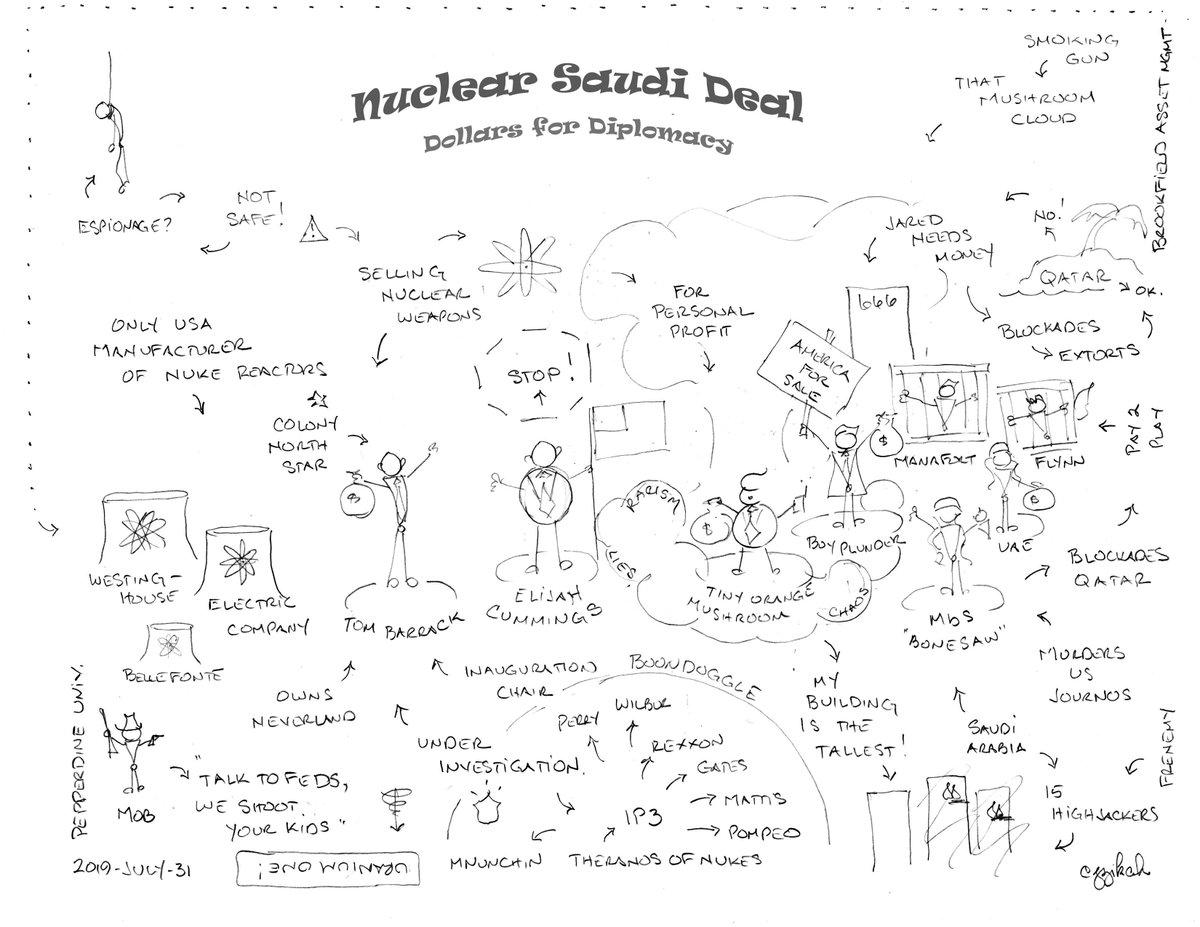 Nuclear Saudi Deal
Dollars for Diplomacy
SMOKING
GUN
THAT
MUSHROOM
CLOUD
BROOKFIELD ASSET MGMT.
ESPIONAGE?
NOT
SAFE!
!
SELLING
NUCLEAR
WEAPONS
FOR
PERSONAL
PROFIT
JARED
NEEDS
MONEY
NO!
QATAR
OK.
BLOCKADES
EXTORTS
666
ONLY USA
MANUFACTURER
OF NUKE REACTORS
STOP!
AMERICA
FOR
SALE
COLONY
NORTH
STAR
$
$
$
$
MANAFORT
FLYNN
PAY 2
PLAY
RACISM
LIES!
CHAOS
WESTING-
HOUSE
ELECTRIC
COMPANY
BELLEFONTE
TOM BARRACK
ELIJAH
CUMMINGS
TINY ORANGE
MUSHROOM
BOY PLUNDER
UAE
MbS
"BONESAW"
BLOCKADES
QATAR
MURDERS
US
JOURNOS
OWNS
NEVERLAND
INAUGURATION
CHAIR
BOONDOGGLE
MY
BUILDING
IS THE
TALLEST!
SAUDI
ARABIA
FRENEMY
15
HIGHJACKERS
PEPPERDINE UNIV.
MOB
"TALK TO FEDS,
WE SHOOT
YOUR KIDS"
UNDER
INVESTIGATION.
PERRY
WILBUR
REXXON
GATES
MATTIS
POMPEO
IP3
MNUNCHIN
THERANOS OF NUKES
URANIUM ONE!
2019-JULY-31